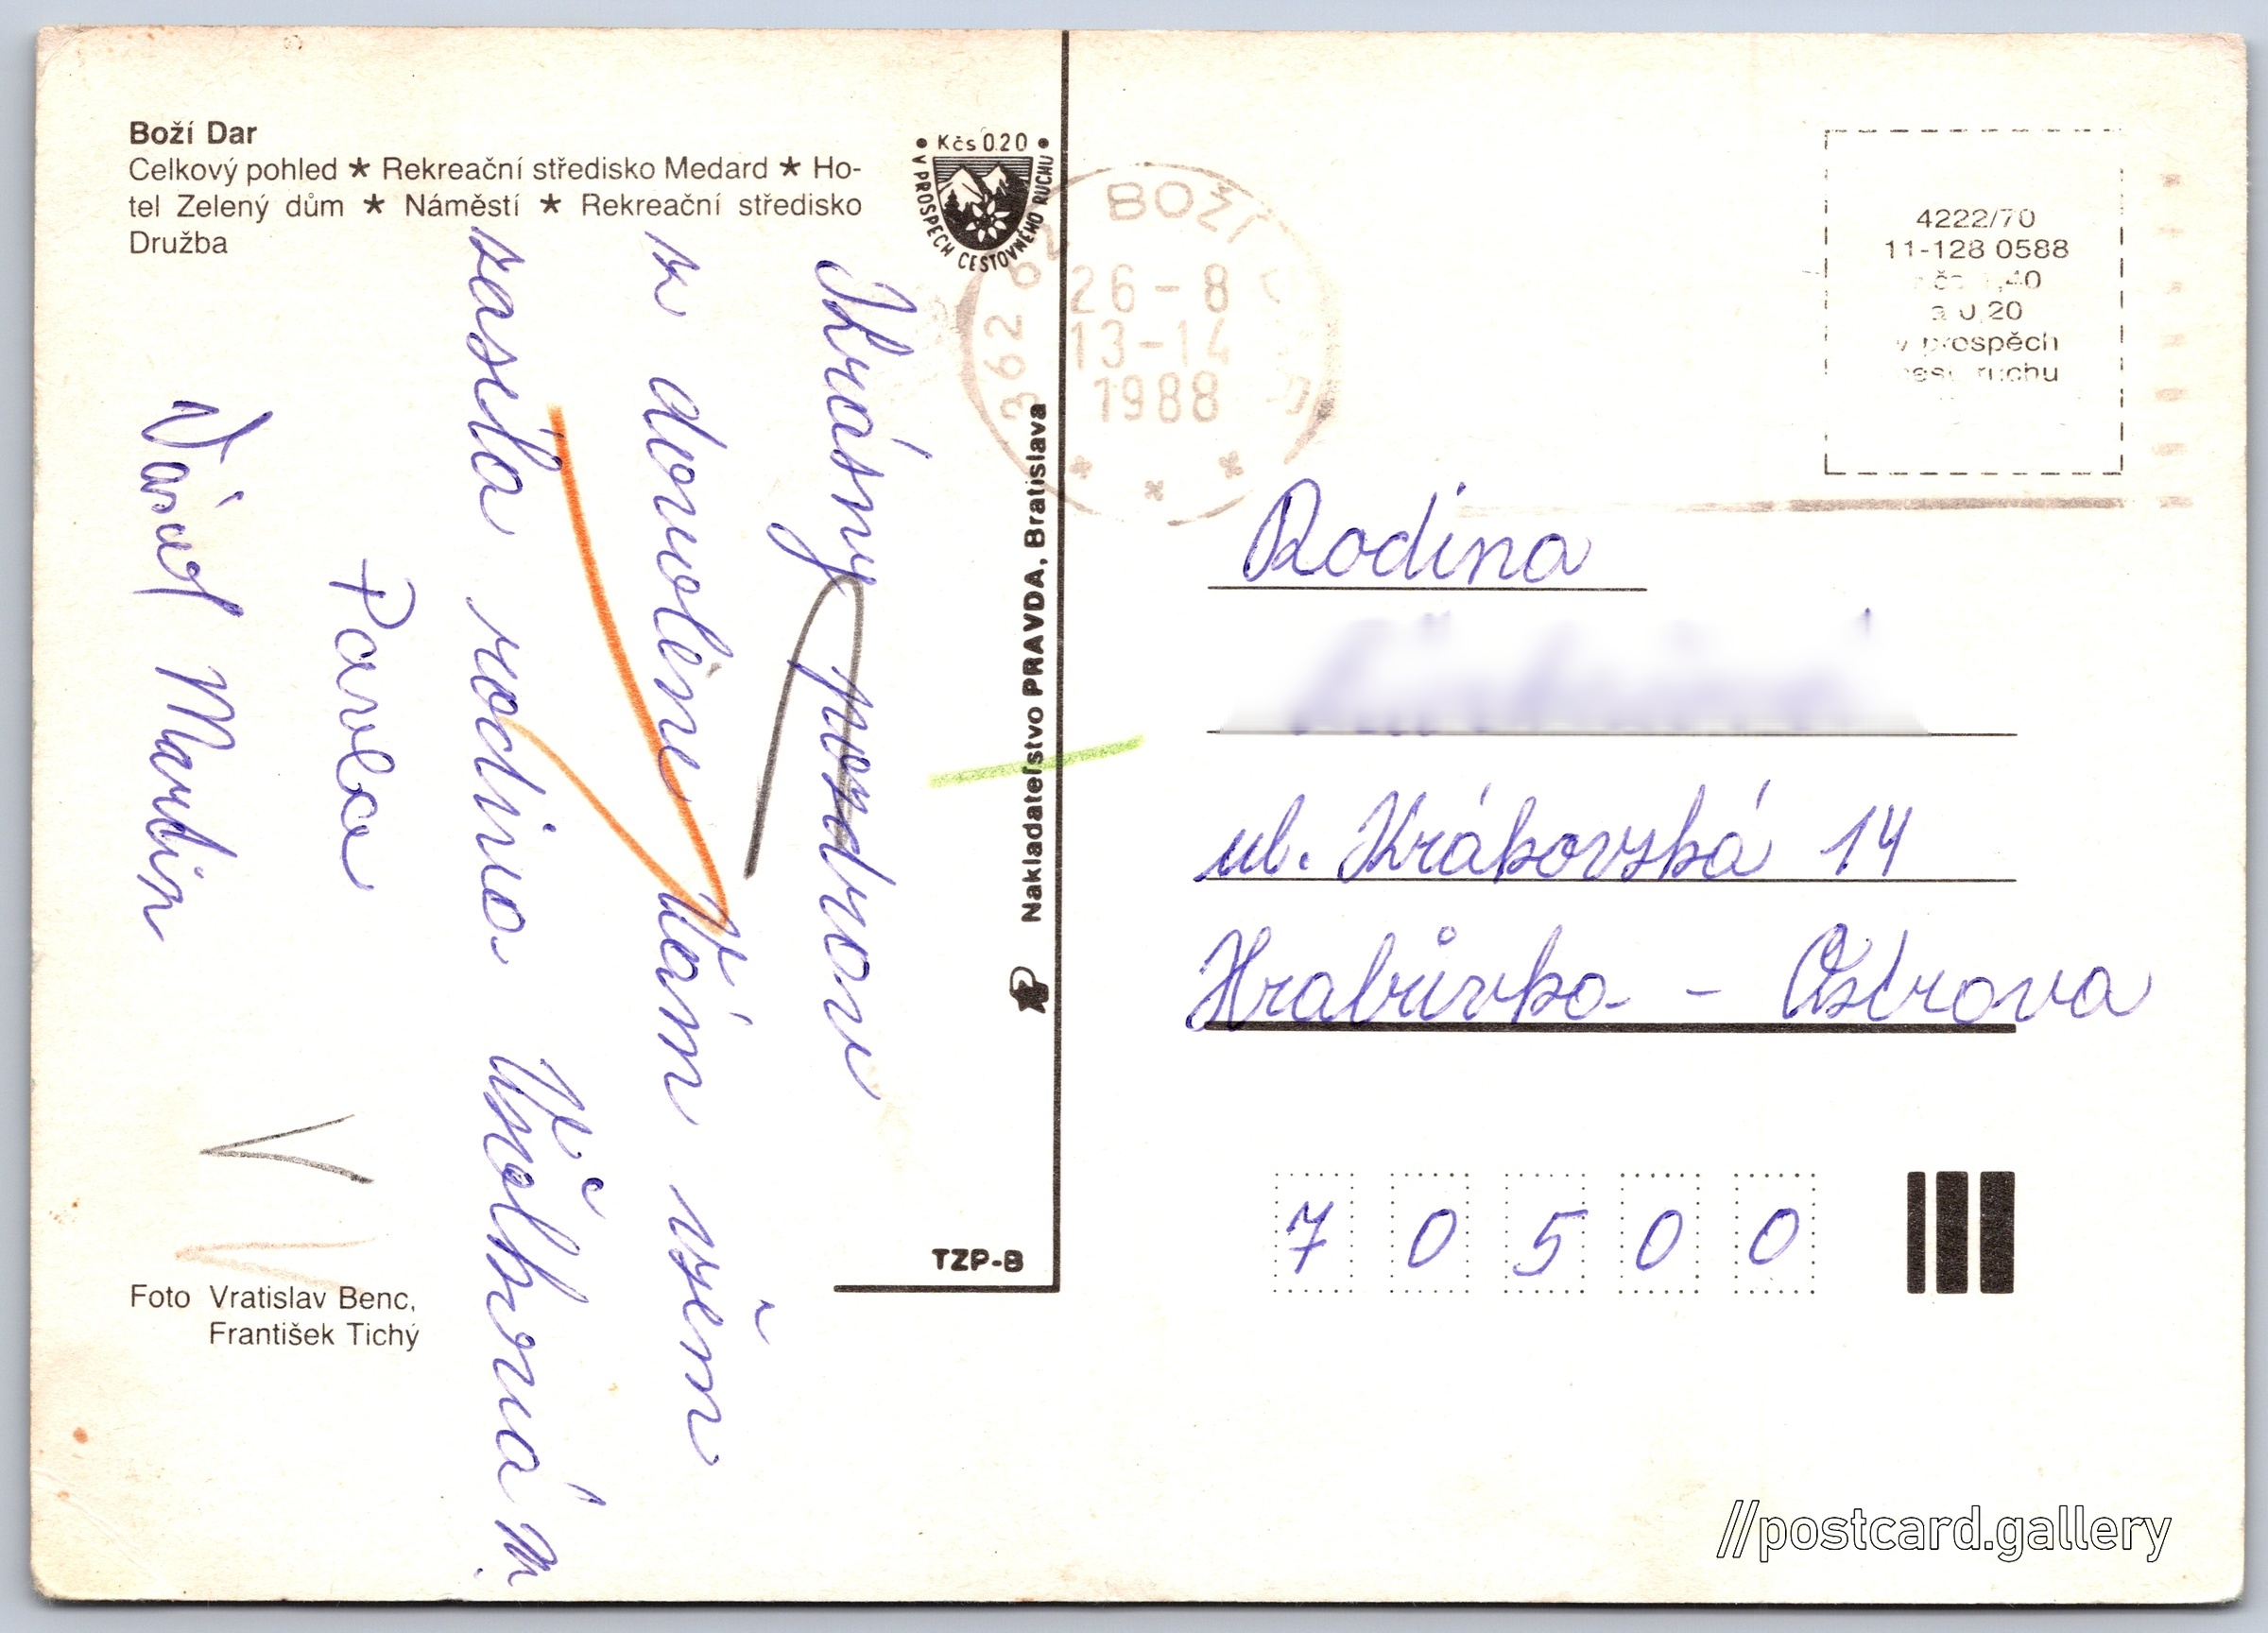 Boží Dar
Celkový pohled ★ Rekreační středisko Medard ★ Ho-
tel Zelený dům ★ Náměstí ★ Rekreační středisko
Družba
• Kčs 0.20 •
V PROSPĚCH CESTOVNÉHO RUCHU
Krásný pozdrav
z dovolené Vám všem
zasílá rodina
Pavla
Martin
Foto Vratislav Benc,
František Tichý
Nakladateľstvo PRAVDA, Bratislava
TZP-B
362 62 BOŽÍ
26-8
13-14
1988
4222/70
11-128 0588
,40
a 0,20
v prospěch
ruchu
Rodina
ul. Krákovská 14
Hrabůvka - Ostrava
7 0 5 0 0
//postcard.gallery